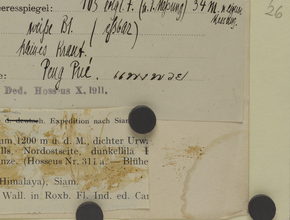 eeresspiegel: 105 engl. f. (a. l. Meßung) 34 m.
26
weiße Bl. (eßbar)
kleines Kraut.
Peng Prié.
Ded. Hosseus X. 1911.
d. deutsch. Expedition nach Siam
um 1200 m ü. d. M., dichter Urw
lls, Nordostseite, dunkellila
nze. (Hosseus Nr. 311 a. — Blühe
Himalaya), Siam.
Wall. in Roxb. Fl. Ind. ed. Car